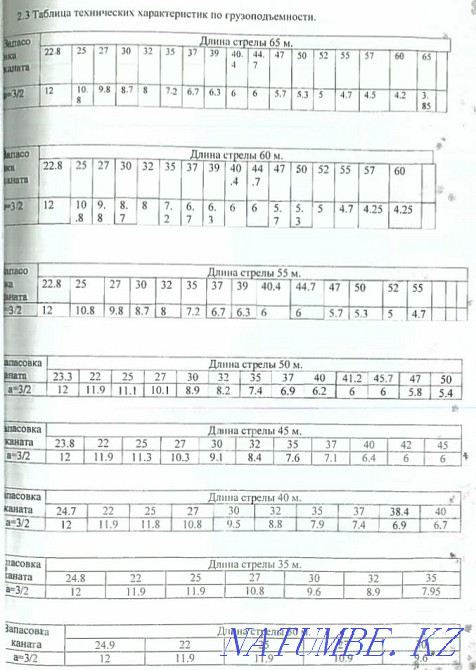 2.3 Таблица технических характеристик по грузоподъемности.
Запасо вка каната Длина стрелы 65 м.
22.8 25 27 30 32 35 37 39 40.4 44.7 47 50 52 55 57 60 65
а=3/2 12 10.8 9.8 8.7 8 7.2 6.7 6.3 6 6 5.7 5.3 5 4.7 4.5 4.2 3.85
Запасо вка каната Длина стрелы 60 м.
22.8 25 27 30 32 35 37 39 40.4 44.7 47 50 52 55 57 60
=3/2 12 10.8 9.8 8.7 8 7.2 6.7 6.3 6 6 5.7 5.3 5 4.7 4.25 4.25
апасо вка каната Длина стрелы 55 м.
22.8 25 27 30 32 35 37 39 40.4 44.7 47 50 52 55
=3/2 12 10.8 9.8 8.7 8 7.2 6.7 6.3 6 6 5.7 5.3 5 4.7
апасовка Длина стрелы 50 м.
каната 23.3 22 25 27 30 32 35 37 40 41.2 45.7 47 50
а=3/2 12 11.9 11.1 10.1 8.9 8.2 7.4 6.9 6.2 6 6 5.8 5.4
апасовка Длина стрелы 45 м.
каната 23.8 22 25 27 30 32 35 37 40 42 45
а=3/2 12 11.9 11.3 10.3 9.1 8.4 7.6 7.1 6.4 6 6
апасовка Длина стрелы 40 м.
каната 24.7 22 25 27 30 32 35 37 38.4 40
а=3/2 12 11.9 11.8 10.8 9.5 8.8 7.9 7.4 6.9 6.7
пасовка Длина стрелы 35 м.
каната 24.8 22 25 27 30 32 35
а=3/2 12 11.9 11.9 10.8 9.6 8.9 7.95
Запасовка Длина стрелы м.
каната 24.9 22
а=3/2 12 11.9 11.9 10.9 9.6
NATUMBE.KZ